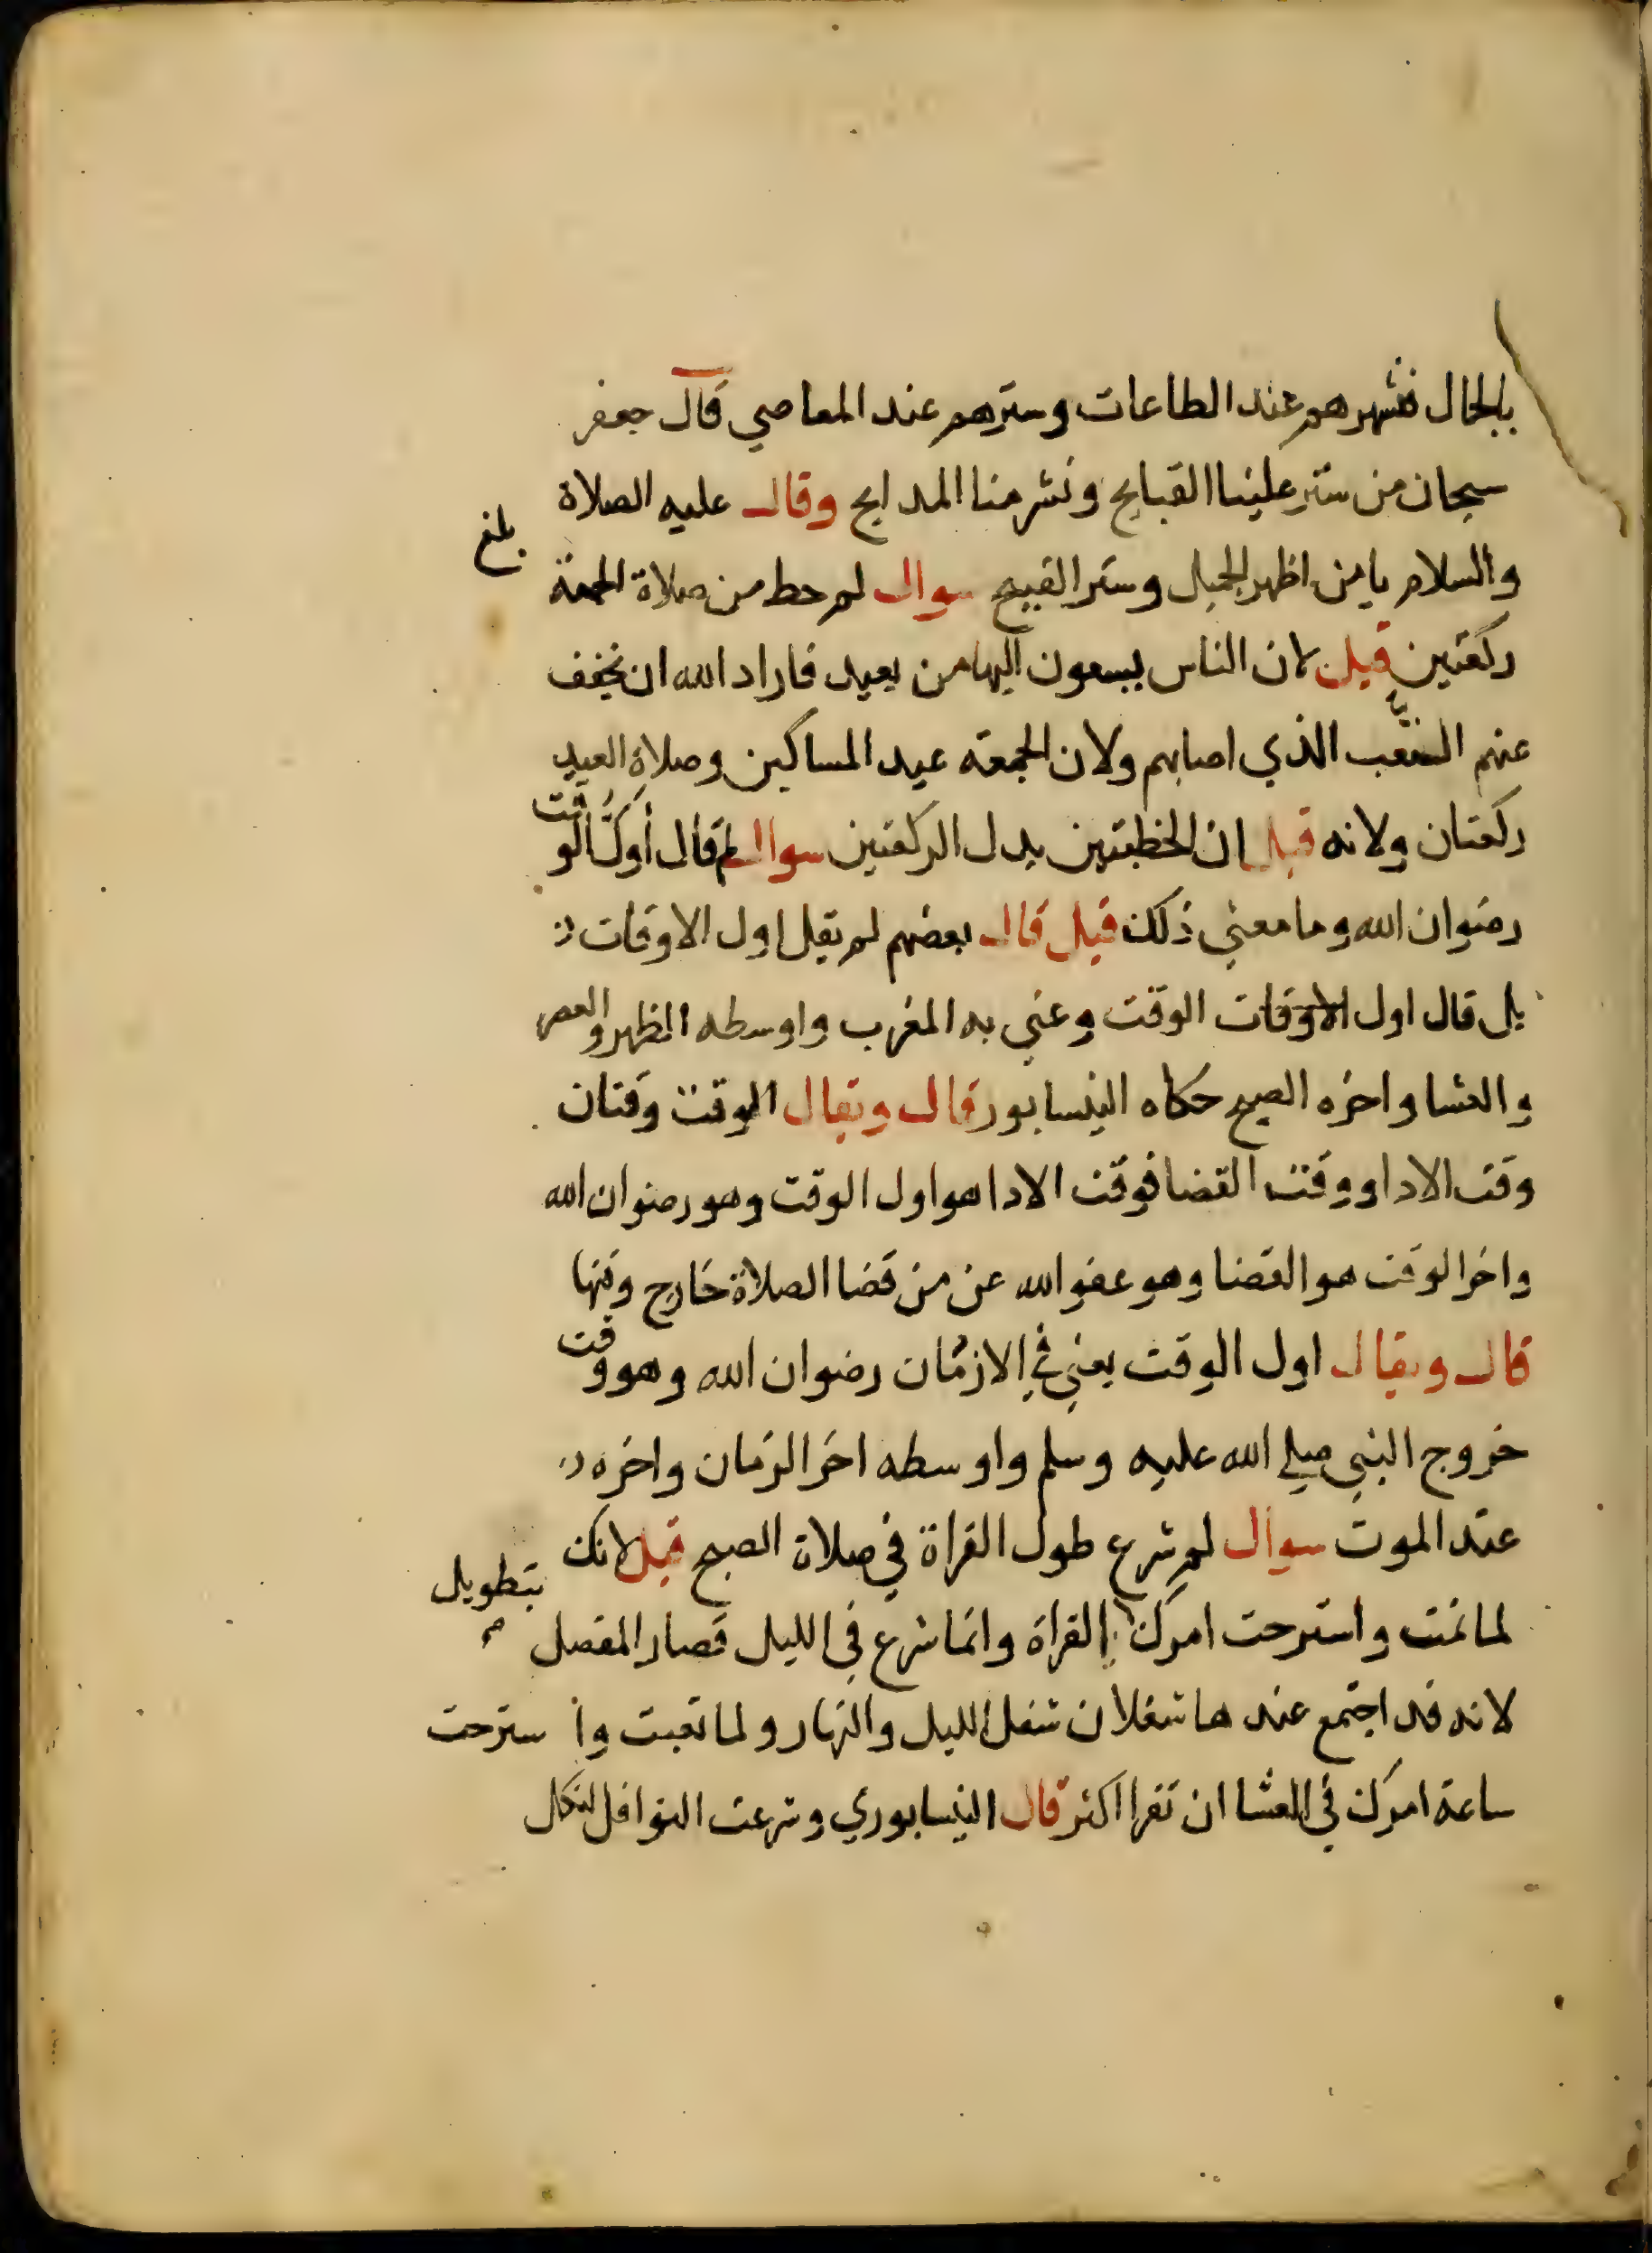 بالحال فشهرهم عند الطاعات وسترهم عند المعاصي قال جعفر
سبحان من ستر علينا القبايح ونشر منا المدايح وقال عليه الصلاة
بلغ
والسلام يا من اظهر الجميل وستر القبيح سوال لم حط من صلاة الجمعة
ركعتين قيل لان الناس يسعون اليها من بعيد فاراد الله ان يخفف
عنهم التعب الذي اصابهم ولان الجمعة عيد المساكين وصلاة العيد
ركعتان ولانه قيل ان الخطبتين بدل الركعتين سوال لم قال أول الوقت
رضوان الله وما معني ذلك قيل قال بعضهم لم يقل اول الاوقات
بل قال اول الاوقات الوقت وعني به المغرب واوسطه الظهر والعصر
والعشا واخره الصبح حكاه النيسابور قال ويقال الوقت وقتان
وقت الادا ووقت القضا فوقت الادا هو اول الوقت وهو رضوان الله
واخر الوقت هو القضا وهو عفو الله عن من قضا الصلاة خارج وقتها
قال ويقال اول الوقت يعني في الازمان رضوان الله وهو وقت
خروج النبي صلي الله عليه وسلم واوسطه اخر الزمان واخره
عند الموت سوال لم شرع طول القراة في صلاة الصبح قيل لانك
لما نمت واسترحت امرك بتطويل القراة وانما شرع في الليل قصار المفصل
لانه قد اجتمع عندها شغلان شغل الليل والنهار ولما تعبت وا سترحت
ساعة امرك في العشا ان تقرا اكثر قال النيسابوري وشرعت النوافل لتكل